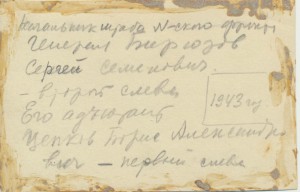 Начальник штаба N-ского фронта
Генерал Бирюзов
Сергей Семенович.
- второй слева
Его адъютант
Цепков Борис Александро
вич - первый слева
1943 г.